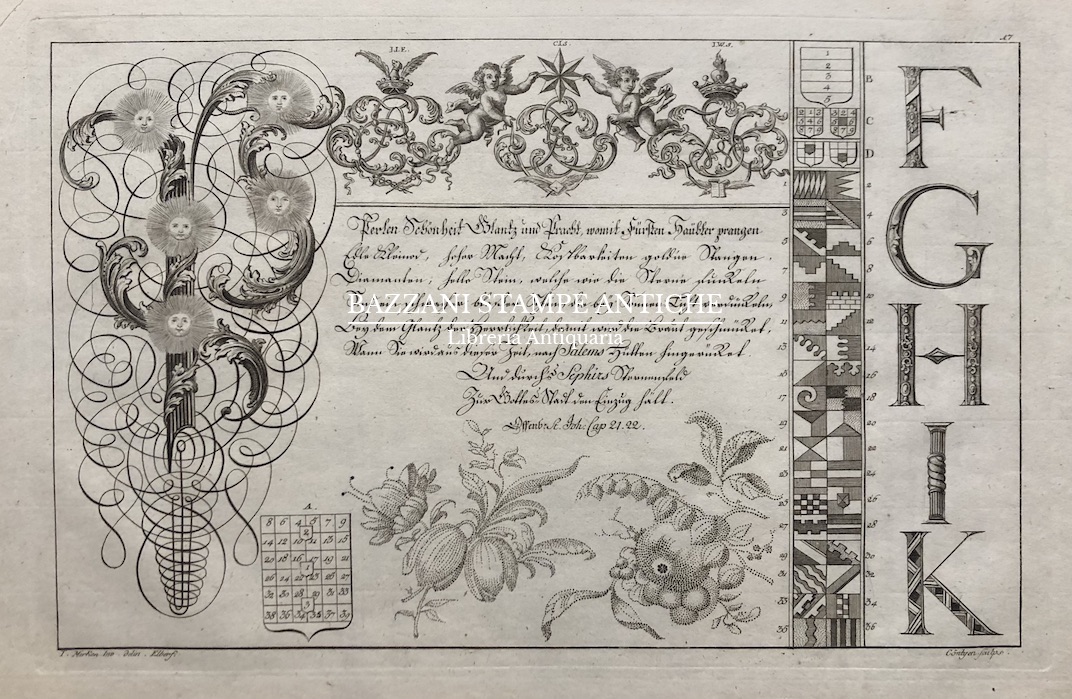 17
J.L.E.
C.L.S.
J.W.S.
Perlen Schönheit Glantz und Pracht, womit Fürsten Häubter prangen
Edle Kleinod, hoher Macht, Kostbarkeiten goldne Stangen.
Diamanten, helle Stein, welche wie die Sterne funkeln
BAZZANI STAMPE ANTICHE
Bey dem Glantz der Herrlichkeit, damit wird die Braut geschmücket,
Libreria Antiquaria
Wann Sie wird aus dieser Zeit, nach Salems Hütten hingerücket.
Und durchs Saphirs Sternenfeld
Zur Gottes Stadt den Einzug hält.
Offenb: St. Joh: Cap 21. 22.
A.
8 6 4 5 7 9
14 12 10 11 13 15
20 18 16 17 19 21
26 24 22 23 25 27
32 30 28 29 31 33
38 36 34 35 37 39
1
2
3
4
5
B
C
D
1
2
3
4
5
6
7
8
9
10
11
12
13
14
15
16
17
18
19
20
21
22
23
24
25
26
27
28
29
30
31
32
33
34
35
36
F
G
H
I
K
Cöntgen sculps.